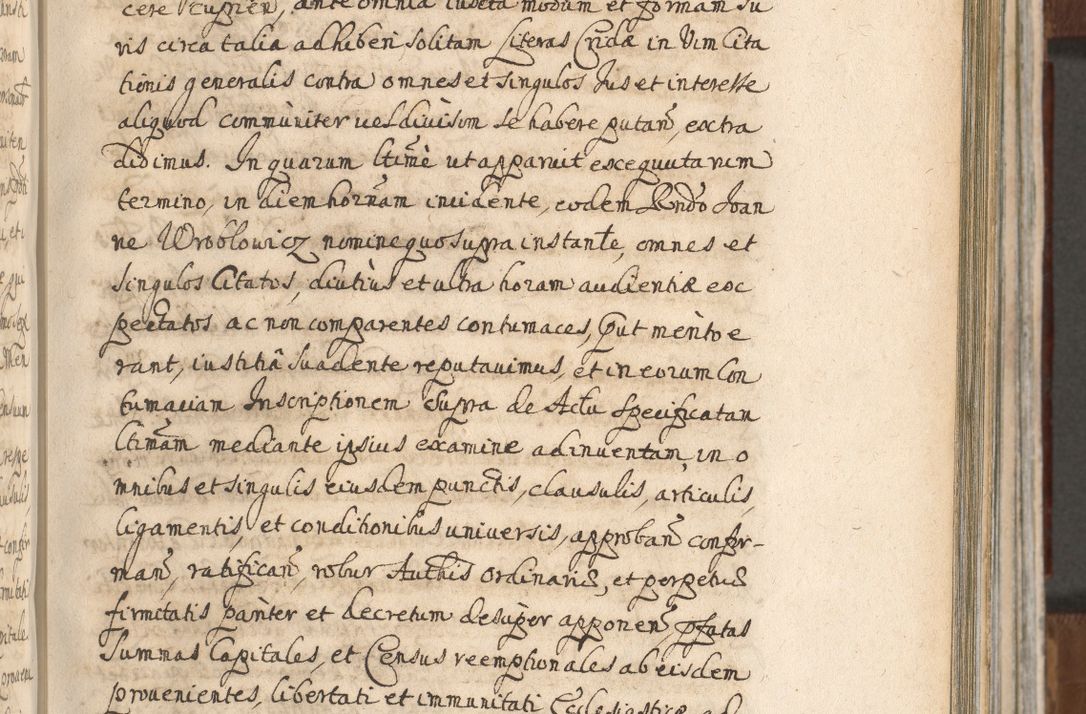 cere cupien, ante omnia iuxta modum et formam Iu
ris circa talia adhiberi solitam Literas Cridæ in Vim Cita
tionis generalis contra omnes et singulos Jus et interesse
aliquod communiter uel diuisim se habere putañ, extra
didimus. In quarum ltime ut apparuit exequutarum
termino, in diem hornam incidente, eodem Rndo Joan
ne Wroblowicz nomine quo supra instante, omnes et
singulos Citatos, diutius et ultra horam audientiæ exc
pectatos ac non comparentes contumaces, put merito e
rant, iustitiâ suadente reputauimus, et in eorum Con
tumaciam Inscriptionem Supra de Actu specificatam
ltimam mediante ipsius examine adinuentam, in o
mnibus et singulis eiusdem punctis, clausulis, articulis,
ligamentis, et conditionibus uniuersis, approbañ confir-
mañ, ratificañ, robur Authis ordinariæ, et perpetuæ
firmitatis pariter et decretum desuper apponeñ, pfatas
Summas Capitales, et Census reemptionales ab eisdem
prouenientes, libertati et immunitati Ecclesiasticæ ad